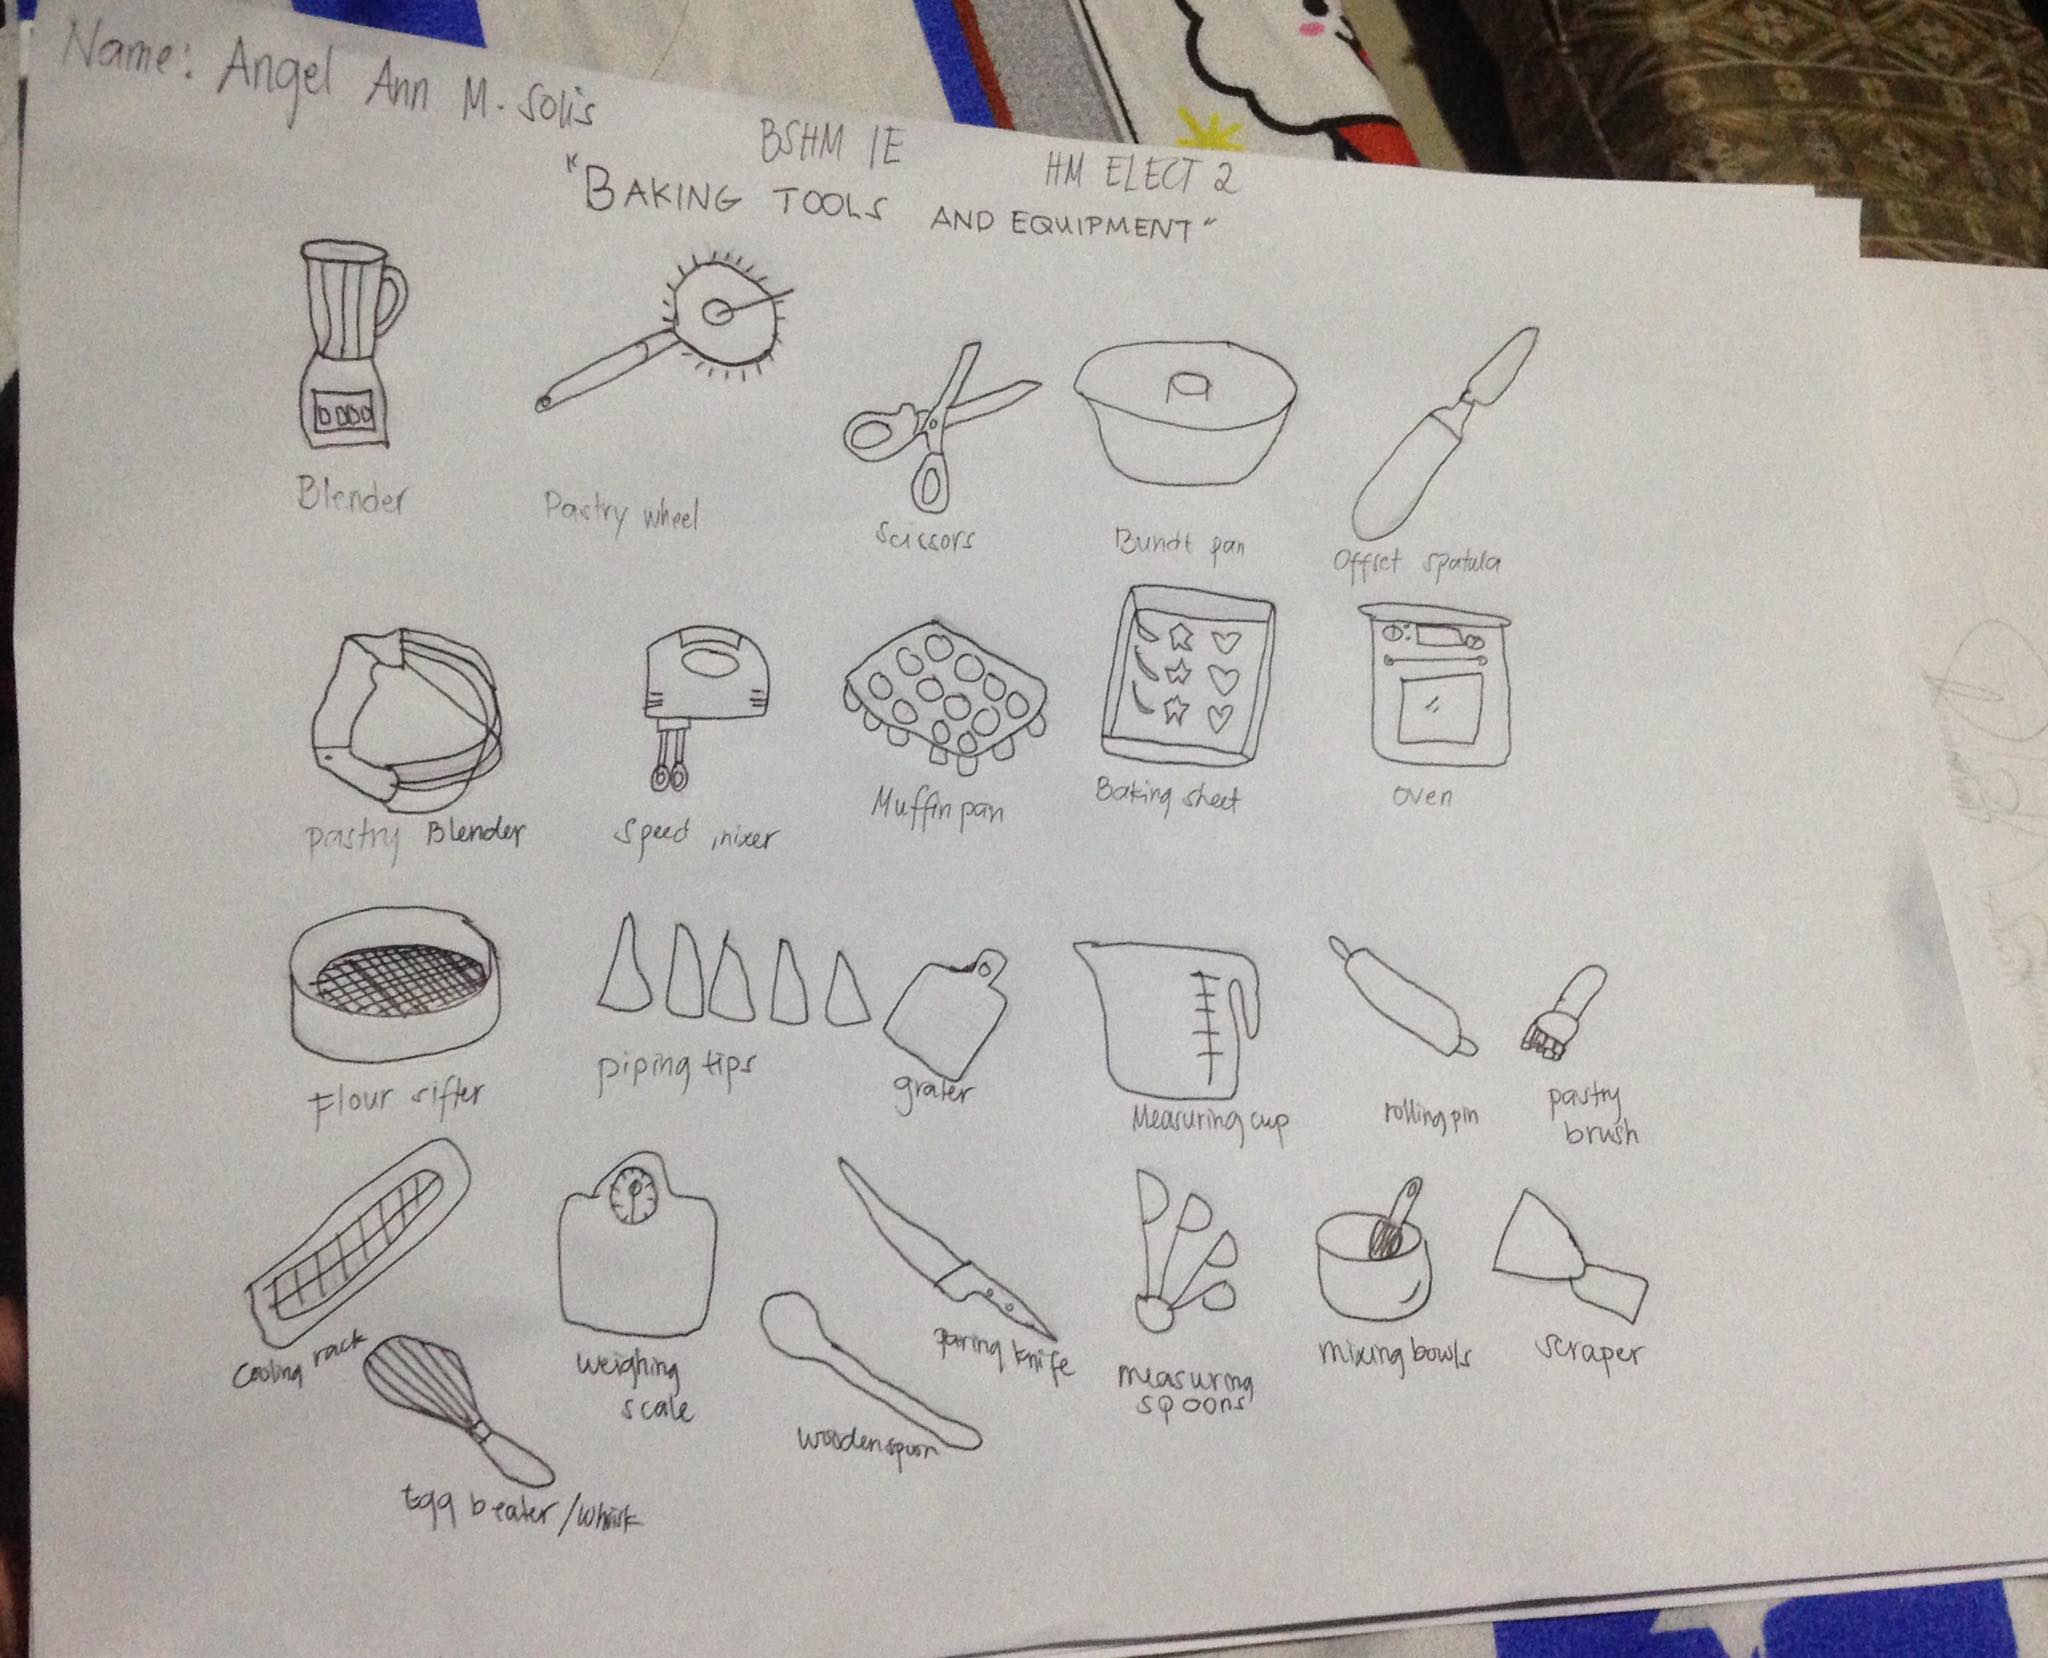 Name: Angel Ann M. Solis
BSHM 1E
HM ELECT 2
"BAKING TOOLS AND EQUIPMENT"
Blender
Pastry wheel
Scissors
Bundt pan
Offset spatula
pastry Blender
Speed mixer
Muffin pan
Baking sheet
oven
Flour sifter
piping tips
grater
Measuring cup
rolling pin
pastry
brush
Cooling rack
weighing
scale
paring knife
measuring
spoons
mixing bowls
scraper
wooden spoon
Egg beater/whisk